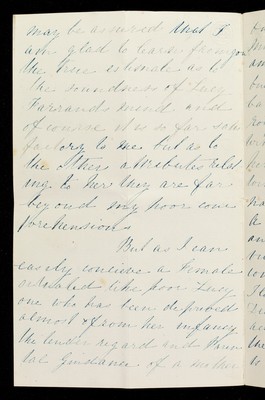 may be assured that I
am glad to learn from you
the true estimate as to
the soundness of Lucy
Farrands mind and
of course it is so far satis
factory to me but as to
the others attributes relat
ing to her they are far
beyond my poor com
prehensions
But as I can
easily conceive a Female
situated like poor Lucy
one who has been deprived
almost from her infancy
the tender regard and Paren
tal Guidance of a mother